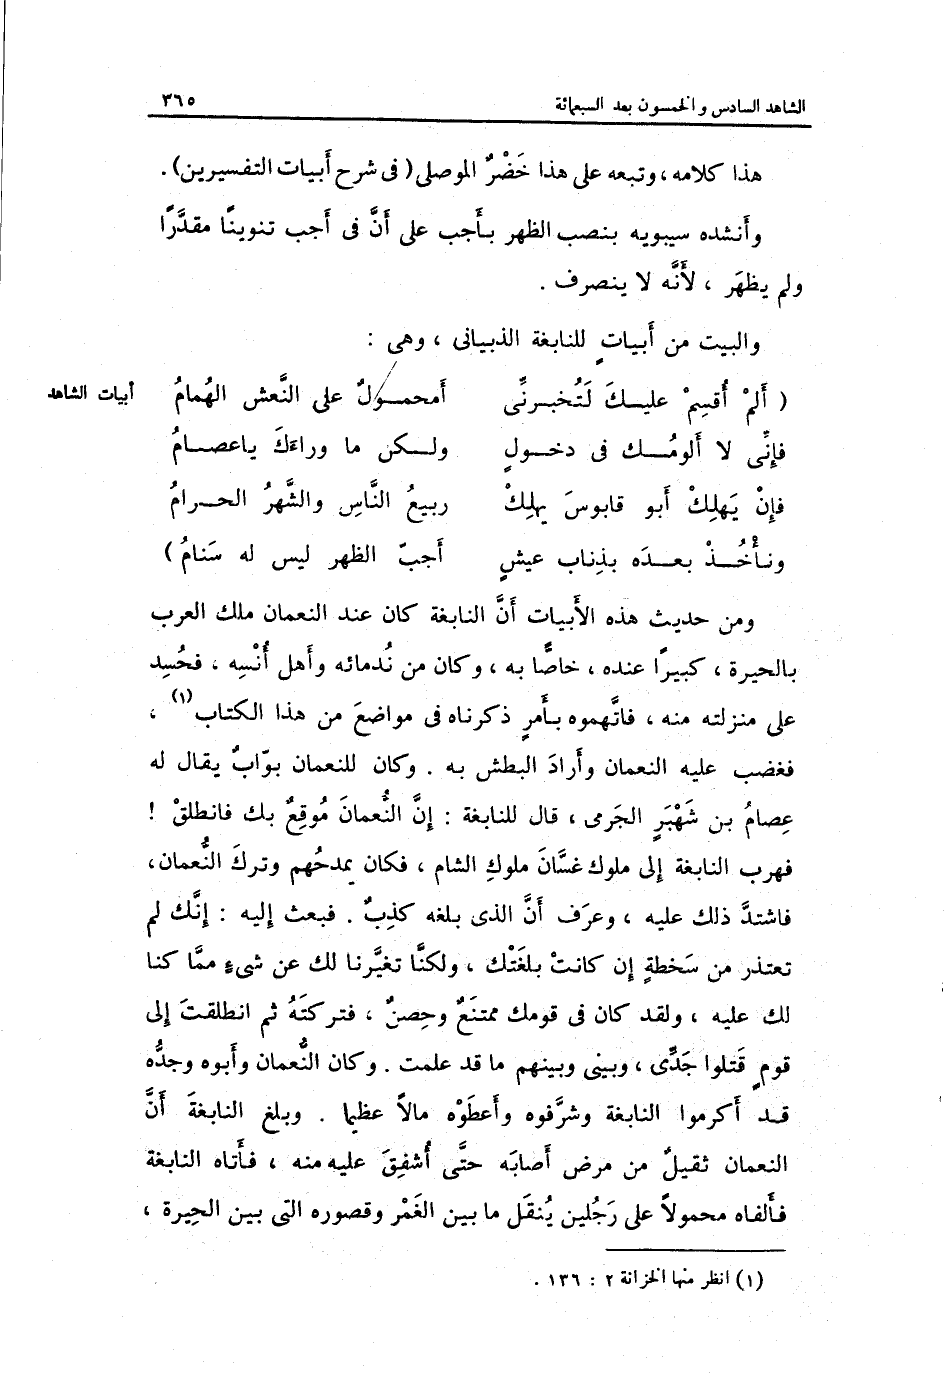 الشاهد السادس والخمسون بعد السبعمائة ٣٦٥
هذا كلامه ، وتبعه على هذا خَضْرٌ الموصلى ( فى شرح أبيات التفسيرين ) .
وأنشده سيبويه بنصب الظهر بأَجب على أنَّ فى أَجب تنوينًا مقدَّرًا
ولم يظهَر ، لأَنَّه لا ينصرف .
والبيت من أَبياتٍ للنابغة الذبيانى ، وهى :
( أَلمْ أُقسِمْ عليكَ لَتُخبرنِّى أَمحمولٌ على النَّعش الهُمامُ
أبيات الشاهد
فإِنِّى لا أَلومُك فى دخولٍ ولكن ما وراءَكَ ياعصامُ
فإِنْ يَهلِكْ أَبو قابوسَ يهلِكْ ربيعُ النَّاسِ والشَّهرُ الحرامُ
ونأْخُذْ بعدَه بذِناب عيشٍ أَجبّ الظهر ليس له سَنامُ )
ومن حديث هذه الأَبيات أَنَّ النابغة كان عند النعمان ملك العرب
بالحيرة ، كبيرًا عنده ، خاصًّا به ، وكان من نُدمائه وأَهل أُنْسِه ، فحُسِد
على منزلته منه ، فاتَّهموه بأَمرٍ ذكرناه فى مواضعَ من هذا الكتاب (١) ،
فغضب عليه النعمان وأَرادَ البطش به . وكان للنعمان بوّابٌ يقال له
عِصامُ بن شَهْبَرٍ الجَرمى ، قال للنابغة : إِنَّ النُّعمانَ مُوقِعٌ بك فانطلقْ !
فهرب النابغة إِلى ملوك غسَّانَ ملوكِ الشام ، فكان يمدحُهم وتركَ النُّعمان ،
فاشتدَّ ذلك عليه ، وعرَف أَنَّ الذى بلغه كذِبٌ . فبعث إِليه : إِنَّك لم
تعتذر من سَخطةٍ إن كانتْ بلغَتْك ، ولكنَّا تغيَّرنا لك عن شىءٍ ممَّا كنا
لك عليه ، ولقد كان فى قومك ممتنَعٌ وحِصنٌ ، فتركتَهُ ثم انطلقتَ إِلى
قومٍ قَتلوا جَدِّى ، وبينى وبينهم ما قد علمت . وكان النُّعمان وأَبوه وجدُّه
قد أَكرموا النابغة وشرَّفوه وأَعطَوْه مالاً عظيما . وبلغ النابغةَ أَنَّ
النعمان ثقيلٌ من مرض أَصابَه حتَّى أُشفِقَ عليه منه ، فأَتاه النابغة
فأَلفاه محمولاً على رَجُلين يُنقَل ما بين الغَمْر وقصوره التى بين الحِيرة ،
(١) انظر منها الخزانة ٢ : ١٣٦ .